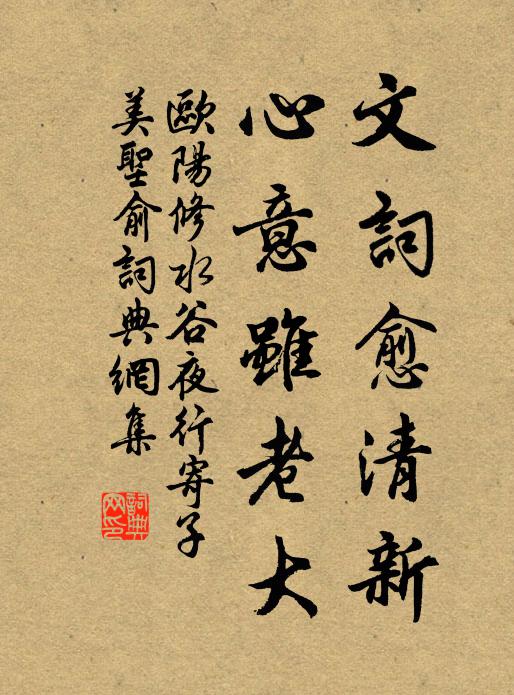 文詞愈清新
心意雖老大
歐陽修水谷夜行寄子
美聖俞詞典網集
詞典网印